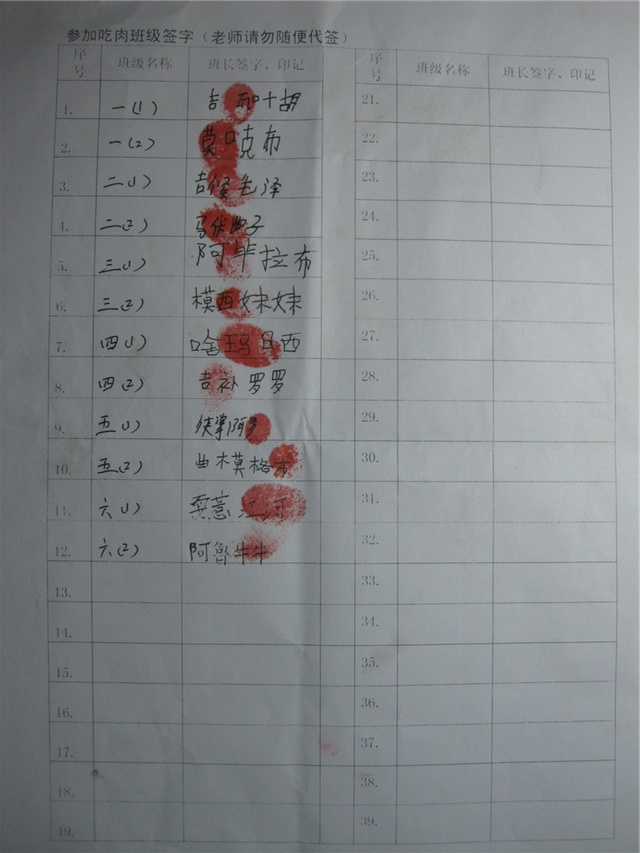 参加吃肉班级签字（老师请勿随便代签）
序号 班级名称 班长签字、印记 序号 班级名称 班长签字、印记
1. 一(1) 吉 和十胡 21.
2. 一(2) 莫 克布 22.
3. 二(1) 吉 毛泽 23.
4. 二(2) 马 子 24.
5. 三(1) 阿牛拉布 25.
6. 三(2) 模西妹妹 26.
7. 四(1) 玛日西 27.
8. 四(2) 吉补罗罗 28.
9. 五(1) 阿 29.
10. 五(2) 曲木莫格 30.
11. 六(1) 江河 31.
12. 六(2) 阿鲁牛牛 32.
13. 33.
14. 34.
15. 35.
16. 36.
17. 37.
18. 38.
19. 39.